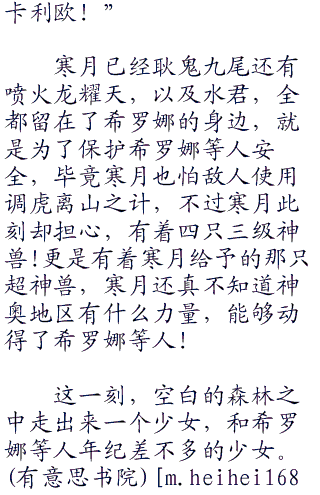 卡利欧！”
寒月已经耿鬼九尾还有
喷火龙耀天，以及水君，全
都留在了希罗娜的身边，就
是为了保护希罗娜等人安
全，毕竟寒月也怕敌人使用
调虎离山之计，不过寒月此
刻却担心，有着四只三级神
兽!更是有着寒月给予的那只
超神兽，寒月还真不知道神
奥地区有什么力量，能够动
得了希罗娜等人!
这一刻，空白的森林之
中走出来一个少女，和希罗
娜等人年纪差不多的少女。
(有意思书院)[m.heihei168